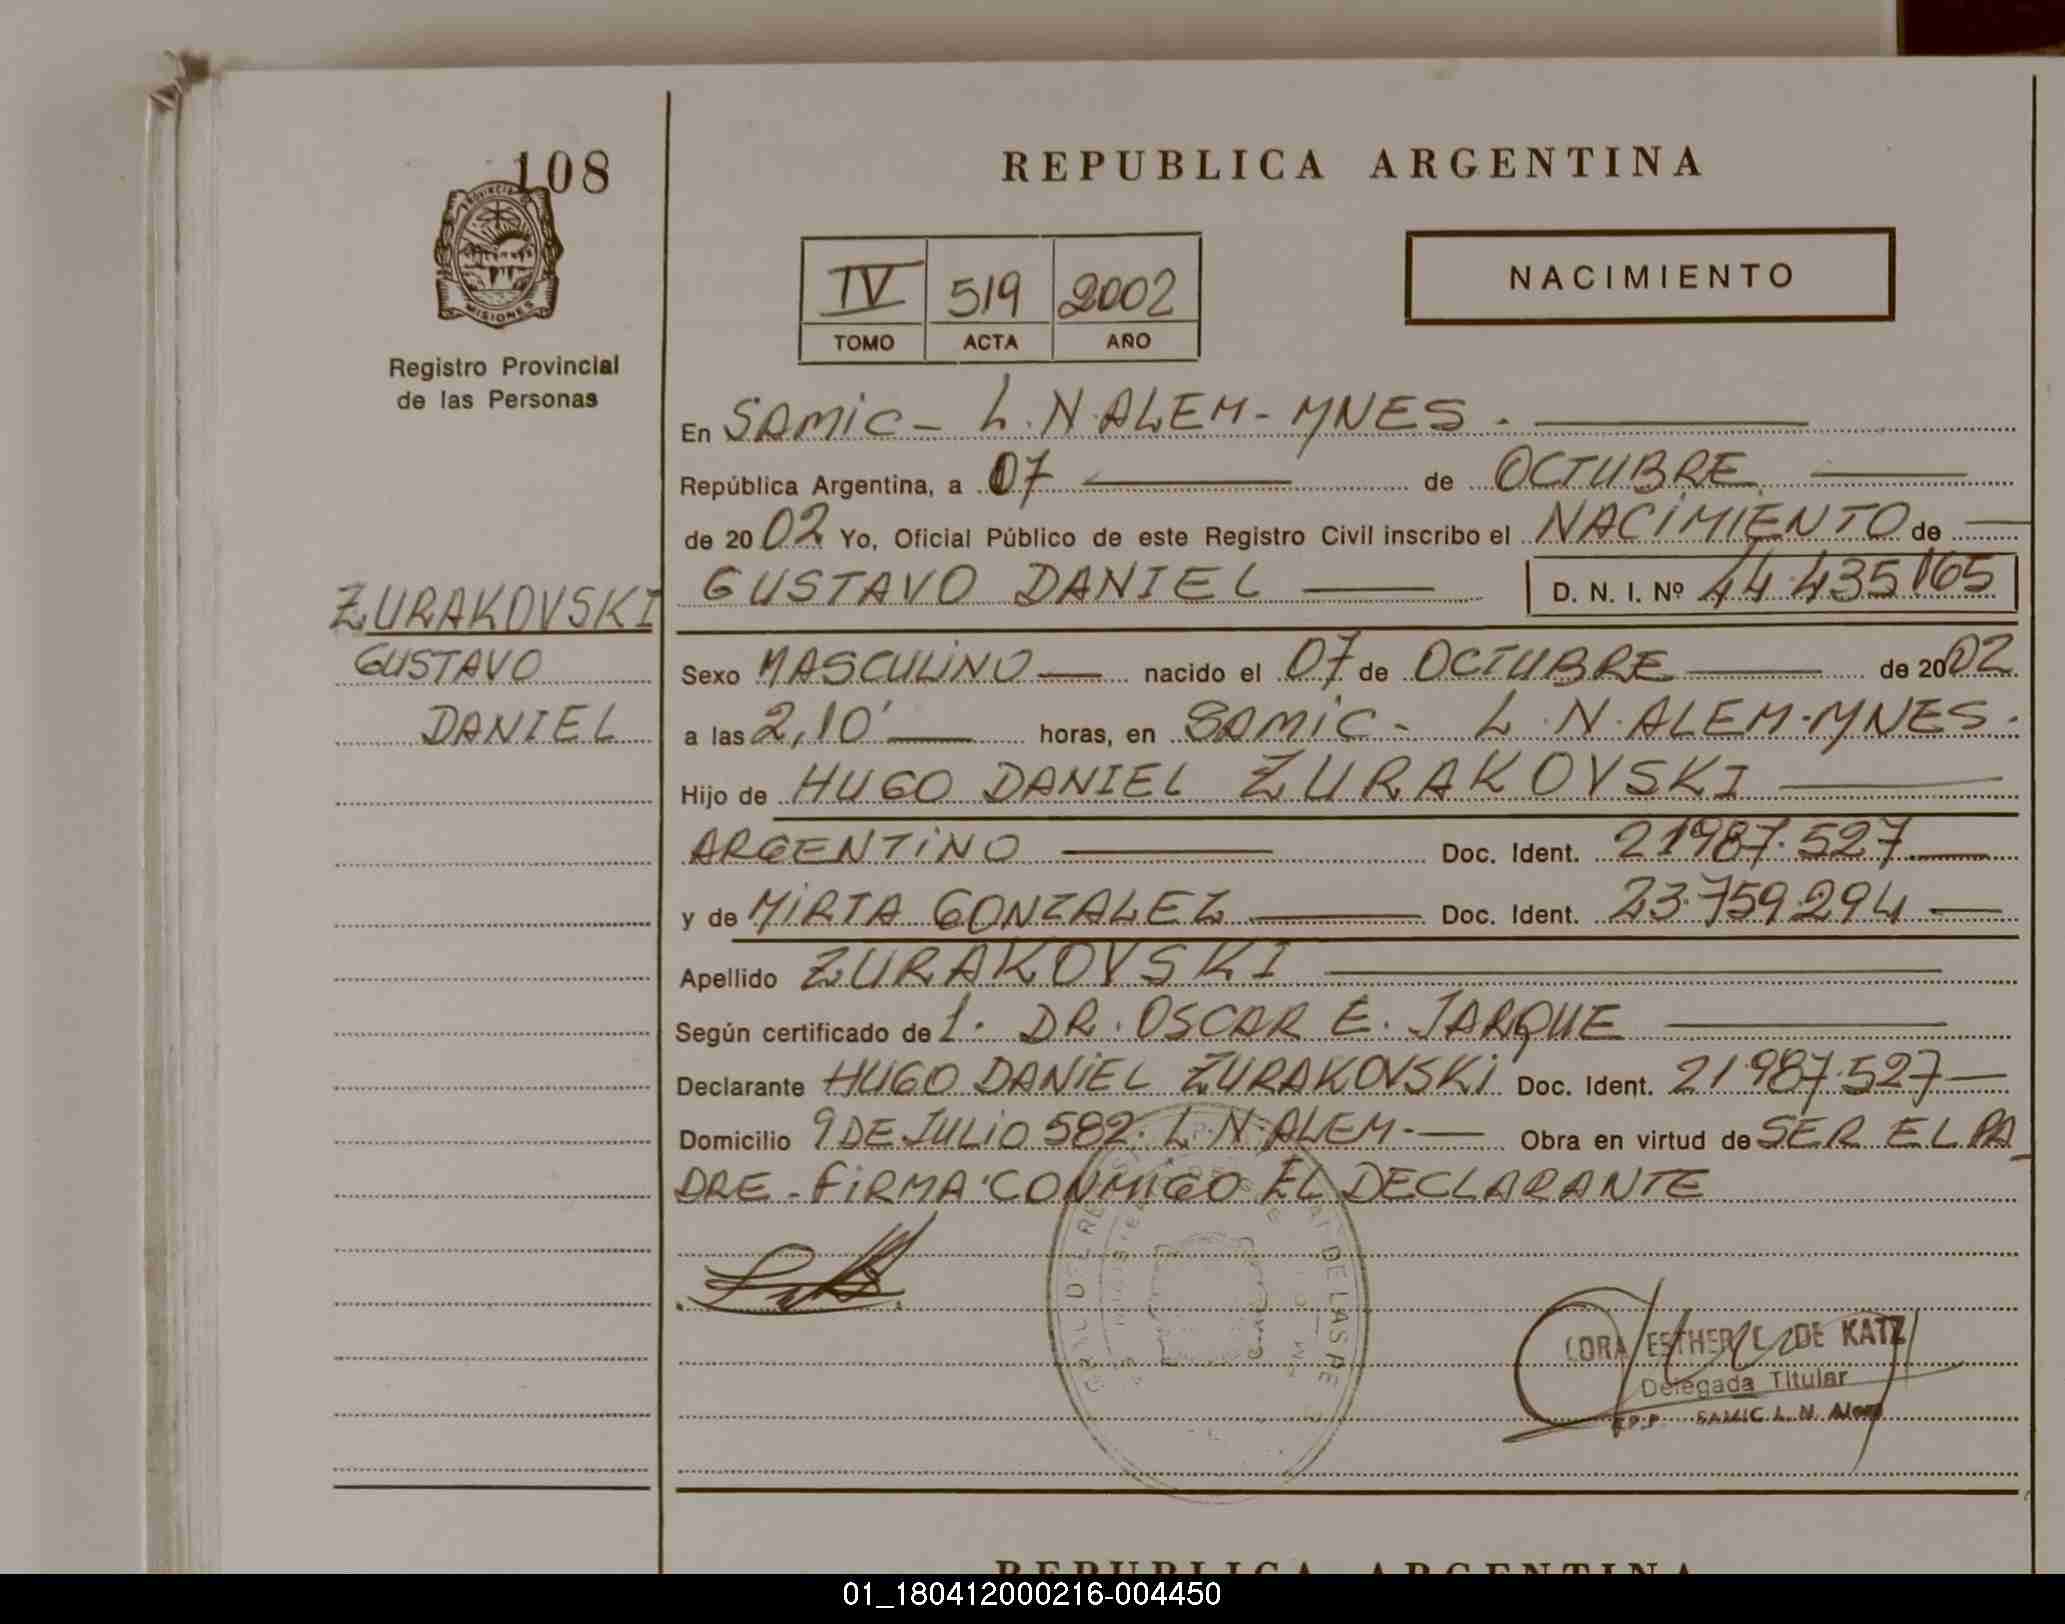 108
PROVINCIA DE
MISIONES
Registro Provincial
de las Personas
ZURAKOVSKI
GUSTAVO
DANIEL
REPUBLICA ARGENTINA
IV 519 2002
TOMO ACTA AÑO
NACIMIENTO
En SAMIC - L. N. ALEM - MNES.
República Argentina, a 07 de OCTUBRE
de 2002 Yo, Oficial Público de este Registro Civil inscribo el NACIMIENTO de
GUSTAVO DANIEL D. N. I. Nº 44.435.165
Sexo MASCULINO nacido el 07 de OCTUBRE de 2002
a las 2,10' horas, en SAMIC - L. N. ALEM - MNES.
Hijo de HUGO DANIEL ZURAKOVSKI
ARGENTINO Doc. Ident. 21.987.527
y de MIRTA GONZALEZ Doc. Ident. 23.759.294
Apellido ZURAKOVSKI
Según certificado de 1. DR. OSCAR E. JARQUE
Declarante HUGO DANIEL ZURAKOVSKI Doc. Ident. 21.987.527
Domicilio 9 DE JULIO 582. L. N. ALEM - Obra en virtud de SER EL PA
DRE - FIRMA CONMIGO EL DECLARANTE
ESTHER DE KATZ
Delegada Titular
SAMIC L. N. Alem
REPUBLICA ARGENTINA
01_180412000216-004450